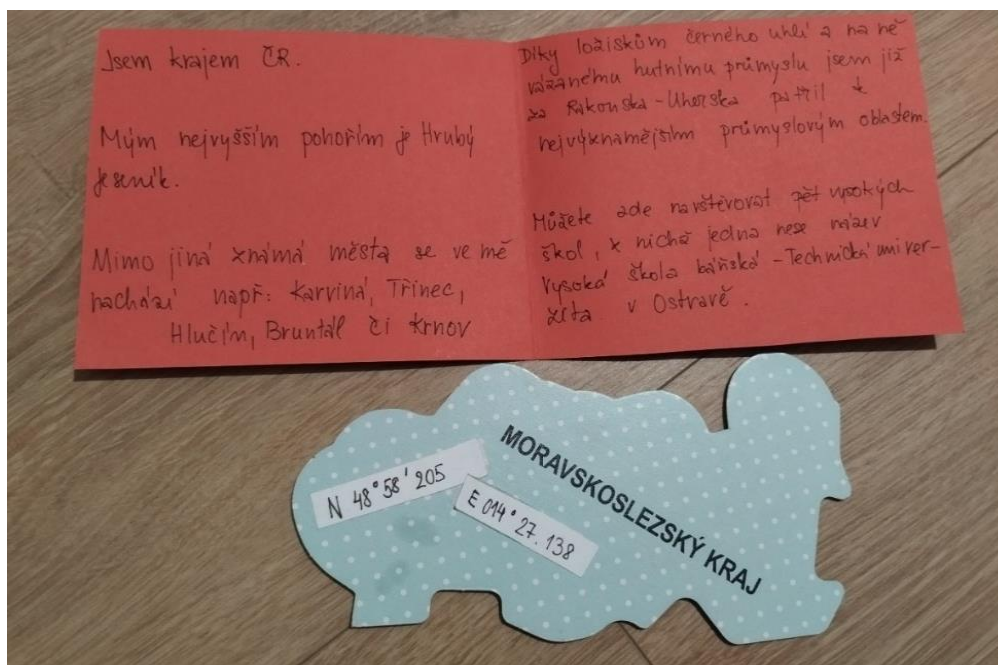 Jsem krajem ČR.
Mým nejvyšším pohořím je Hrubý
Jeseník.
Mimo jiná známá města se ve mě
nachází např: Karviná, Třinec,
Hlučín, Bruntál či Krnov
Díky ložiskům černého uhlí a na ně
vázanému hutnímu průmyslu jsem již
za Rakouska-Uherska patřil k
nejvýznamějším průmyslovým oblastem.
Můžete zde navštěvovat pět vysokých
škol, z nichž jedna nese název
Vysoká škola báňská - Technická univer-
zita v Ostravě.
N 48° 58' 205
E 014° 27. 138
MORAVSKOSLEZSKÝ KRAJ